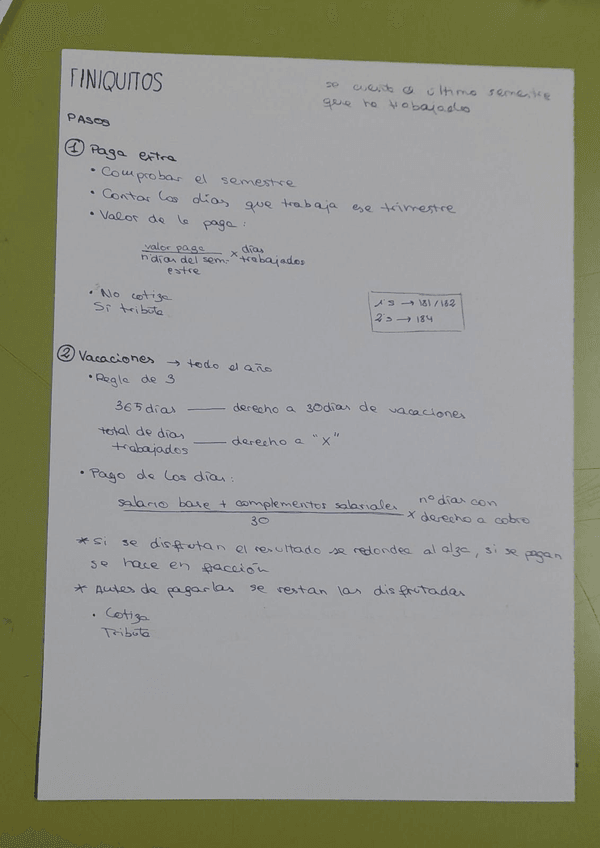 FINIQUITOS
se cuenta el último semestre
que ha trabajado
PASOS
① Paga extra
• Comprobar el semestre
• Contar los días que trabaja ese trimestre
• Valor de la paga:
valor paga / nº días del sem- estre × días trabajados
• No cotiza
Si tributa
1ºs → 181/182
2ºs → 184
② Vacaciones → todo el año
• Regla de 3
365 días —— derecho a 30 días de vacaciones
total de días
trabajados —— derecho a "x"
• Pago de los días:
salario base + complementos salariales / 30 × nº días con derecho a cobro
* Si se disfrutan el resultado se redondea al alza, si se pagan
se hace en fracción
* Antes de pagarlas se restan las disfrutadas
• Cotiza
Tributa